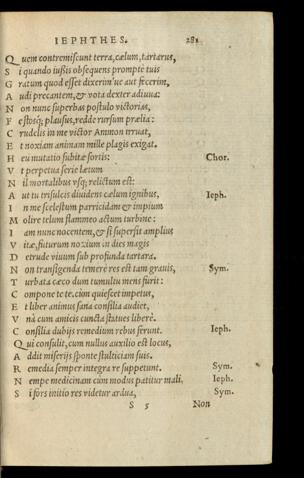 IEPHTHES. 281
Quem contremiscunt terra, cælum, tartarus,
Si quando iussis obsequens promptè tuis
Gratum quod esset dixerim'ue aut fecerim,
Audi precantem, & vota dexter adiuua:
Non nunc superbas postulo victorias,
Festosq; plausus, redde rursum prælia:
Crudelis in me victor Ammon irruat,
Et noxiam animam mille plagis exigat.
Heu mutatio subitæ sortis: Chor.
Vt perpetua serie lætum
Nil mortalibus vsq; relictum est:
Aut tu trisulcis diuidens cælum ignibus, Ieph.
In me scelestum parricidam & impium
Molire telum flammeo actum turbine:
Iam nunc nocentem, & si supersit amplius
Vitæ, futurum noxium in dies magis
Detrude viuum sub profunda tartara.
Non transigenda temerè res est tam grauis, Sym.
Turbata cæco dum tumultu mens furit:
Compone te te. cùm quiescet impetus,
Et liber animus sana consilia audiet,
Vnà cum amicis cuncta statues liberè.
Consilia dubijs remedium rebus ferunt. Ieph.
Qui consulit, cum nullus auxilio est locus,
Addit miserijs sponte stultitiam suis.
Remedia semper integra re suppetunt. Sym.
Nempe medicinam cùm modus patitur mali. Ieph.
Si fors initio res videtur ardua, Sym.
S 5 Non